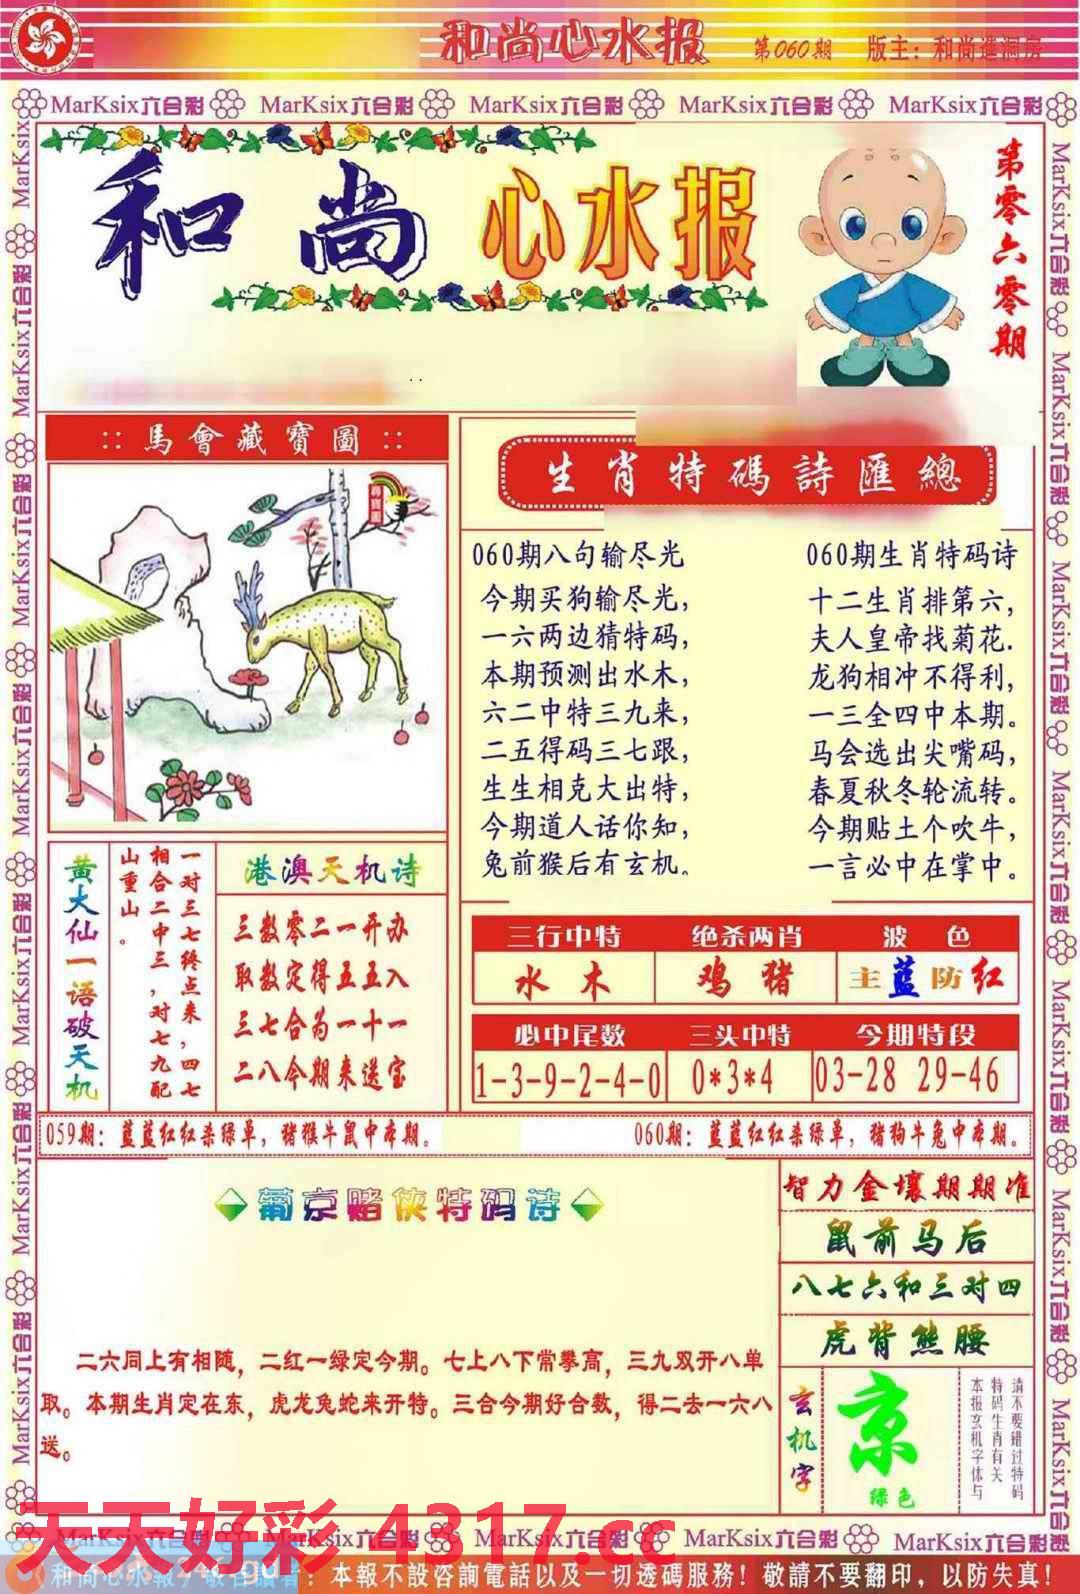 和尚心水报 第060期 版主：和尚進洞房
MarKsix六合彩 MarKsix六合彩 MarKsix六合彩 MarKsix六合彩 MarKsix六合彩
和尚心水报
第零六零期
::馬會藏寶圖::
尋寶圖
生肖特碼詩匯總
060期八句输尽光
今期买狗输尽光，
一六两边猜特码，
本期预测出水木，
六二中特三九来，
二五得码三七跟，
生生相克大出特，
今期道人话你知，
兔前猴后有玄机。
060期生肖特码诗
十二生肖排第六，
夫人皇帝找菊花.
龙狗相冲不得利，
一三全四中本期。
马会选出尖嘴码，
春夏秋冬轮流转。
今期贴土个吹牛，
一言必中在掌中。
黄大仙一语破天机
一对三七终点来，四七
相合二中三，对七九配
山重山。
港澳天机诗
三数零二一开办
取数定得五五入
三七合为一十一
二八今期来送宝
三行中特 绝杀两肖 波色
水木 鸡猪 主蓝防红
必中尾数 三头中特 今期特段
1-3-9-2-4-0 0*3*4 03-28 29-46
059期：蓝蓝红红杀绿单，猪猴牛鼠中本期。
060期：蓝蓝红红杀绿单，猪狗牛兔中本期。
葡京赌侠特码诗
二六同上有相随，二红一绿定今期。七上八下常攀高，三九双开八单
取。本期生肖定在东，虎龙兔蛇来开特。三合今期好合数，得二去一六八
送。
智力金壤期期准
鼠前马后
八七六和三对四
虎背熊腰
玄机字
京
绿色
请不要错过特码
特码生肖有关
本报玄机字体与
天天好彩 4317.cc
MarKsix六合彩 MarKsix六合彩 MarKsix六合彩 MarKsix六合彩 MarKsix六合彩
和尚心水報敬告讀者：本報不設咨詢電話以及一切透碼服務！敬請不要翻印，以防失真！